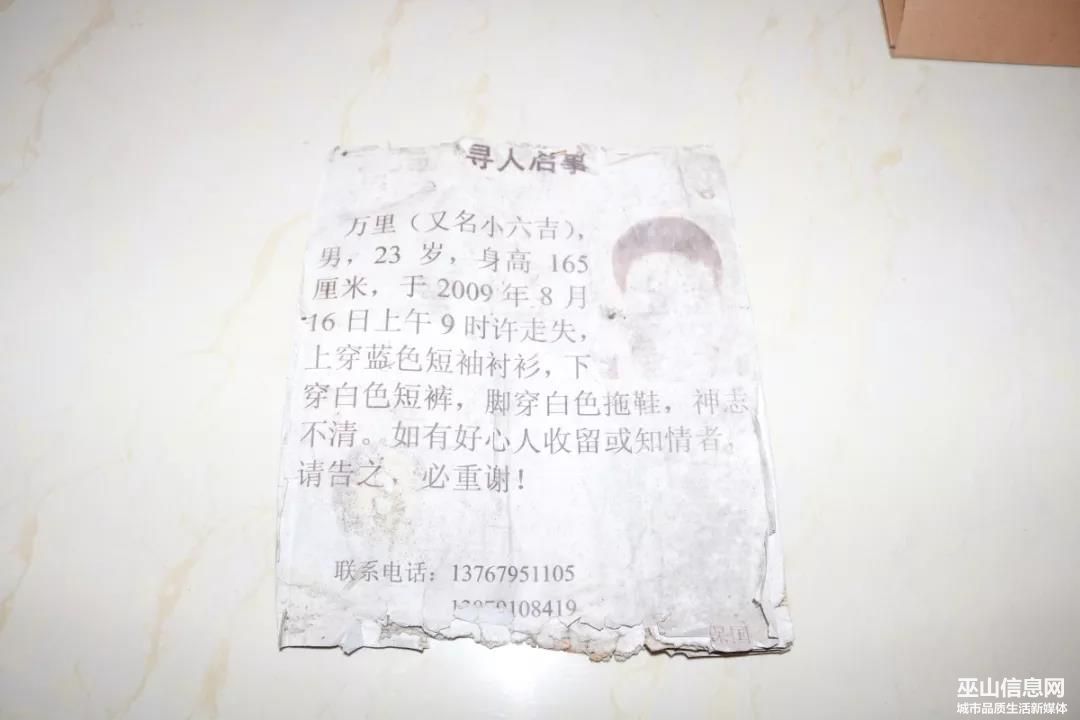 寻人启事
万里（又名小六吉），
男，23 岁，身高 165
厘米，于 2009 年 8 月
16 日上午 9 时许走失，
上穿蓝色短袖衬衫，下
穿白色短裤，脚穿白色拖鞋，神志
不清。如有好心人收留或知情者，
请告之，必重谢！
联系电话：13767951105
巫山信息网
城市品质生活新媒体